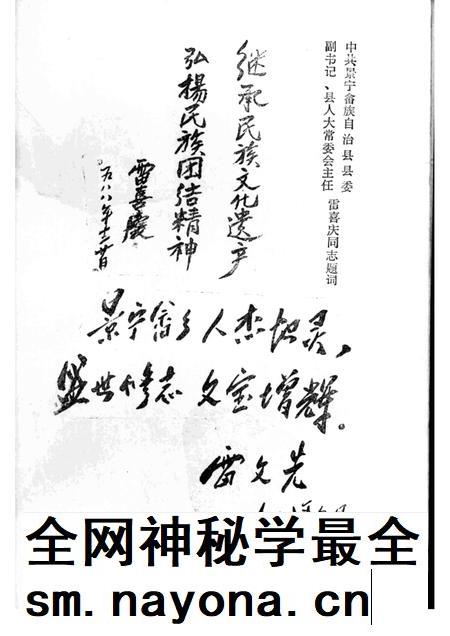 中共景宁畲族自治县县委
副书记、县人大常委会主任 雷喜庆同志题词
继承民族文化遗产
弘揚民族团结精神
雷喜慶
一九八八年十二月廿日
景宁畲乡人杰地灵，
盛世修志 文宝增辉。
雷文先
全网神秘学最全
sm.nayona.cn